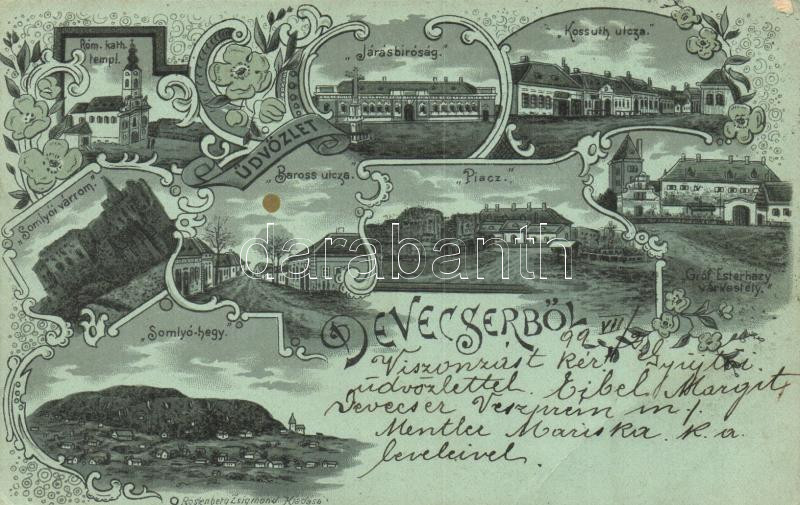 Róm. kath.
templ.
„Járásbiróság."
„Kossuth utcza."
ÜDVÖZLET
„Somlyói várrom."
„Baross utcza."
„Piacz."
„Gróf Esterházy
várkastély."
„Somlyó-hegy."
DEVECSERBŐL
99 VII/
Viszonzást kér
üdvözlettel. Eibel Margit
Devecser Veszprém m/
Mentler Mariska k. a.
leveleivel.
Rosenberg Zsigmond Kiadása
darabanth